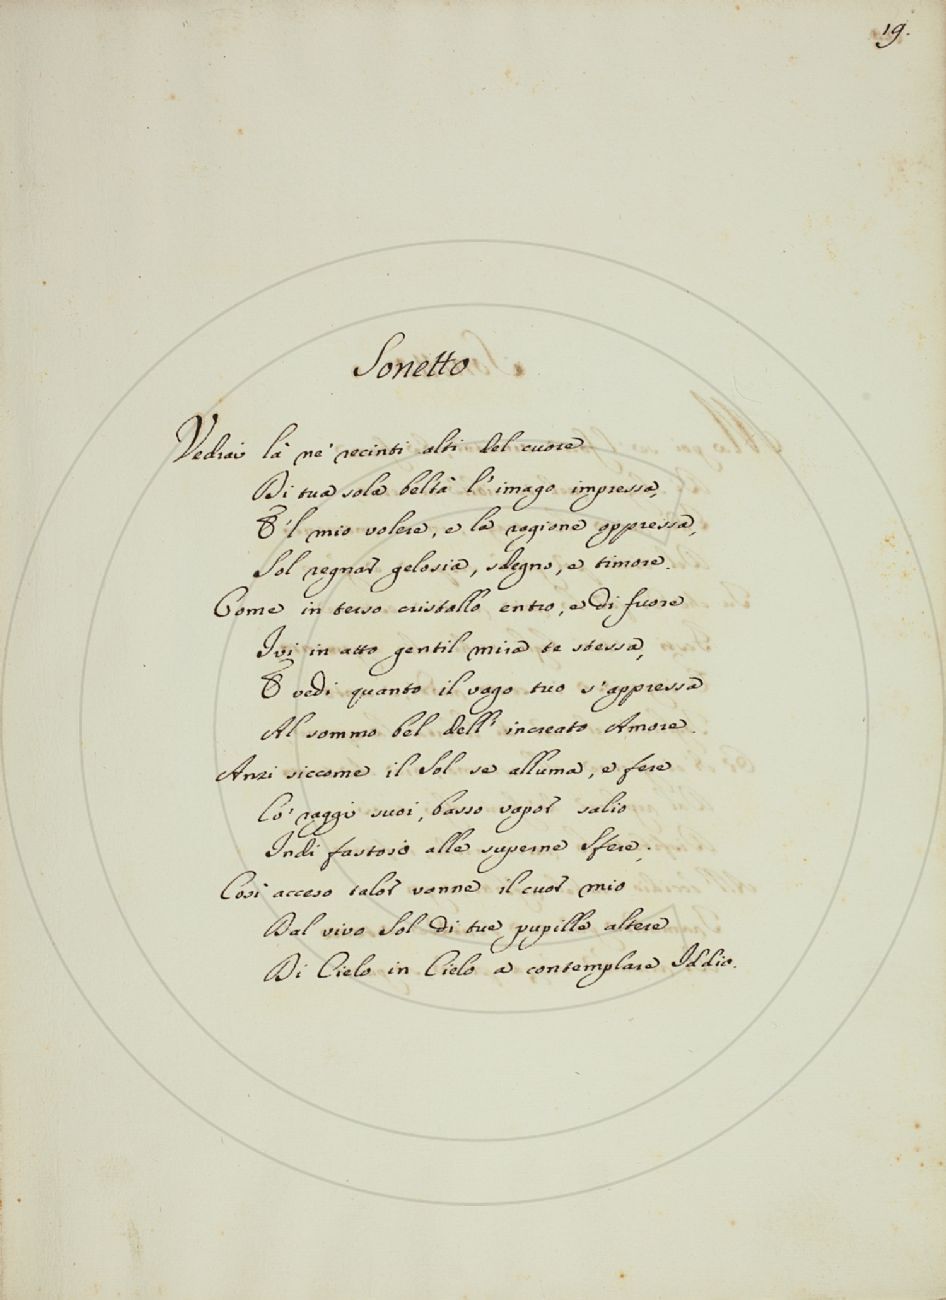 19.
Sonetto
Vedrai là ne' recinti alti del cuore
Di tua sola beltà l'imago impressa,
E 'l mio volere, e la ragione oppressa,
Sol regnar gelosia, sdegno, e timore.
Come in terso cristallo entro, e di fuore
Ivi in atto gentil mira te stessa,
E vedi quanto il vago tuo s'appressa
Al sommo bel dell' increato Amore.
Anzi siccome il Sol se alluma, e fere
Co' raggi suoi, basso vapor salio
Indi fastoso alle superne Sfere;
Così acceso talor vanne il cuor mio
Dal vivo Sol di tue pupille altere
Di Cielo in Cielo a contemplare Iddio.